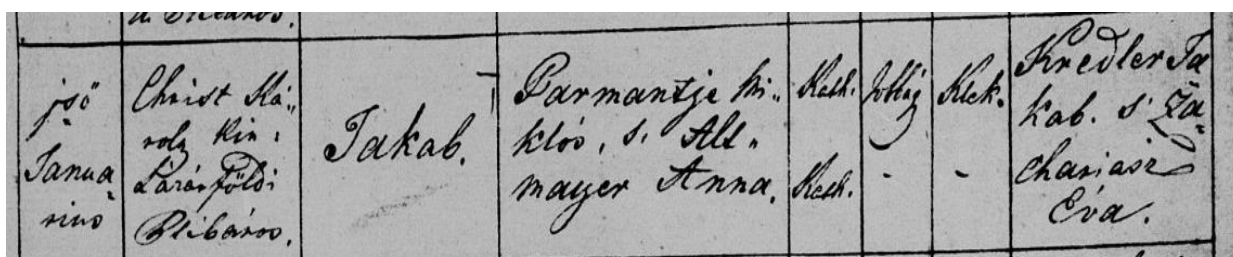 Plébános.
jső
Janua„
rius
Christ Ká„
roly Kin:
Lázárföldi
Plébános.
Jakab.
Parmantje Mi„
klós, s. Alt„
mayer Anna.
Kath.
Kath.
Jobbág
-
Klek.
-
Kredler Ja
kab. s' Zá„
chariász
Éva.